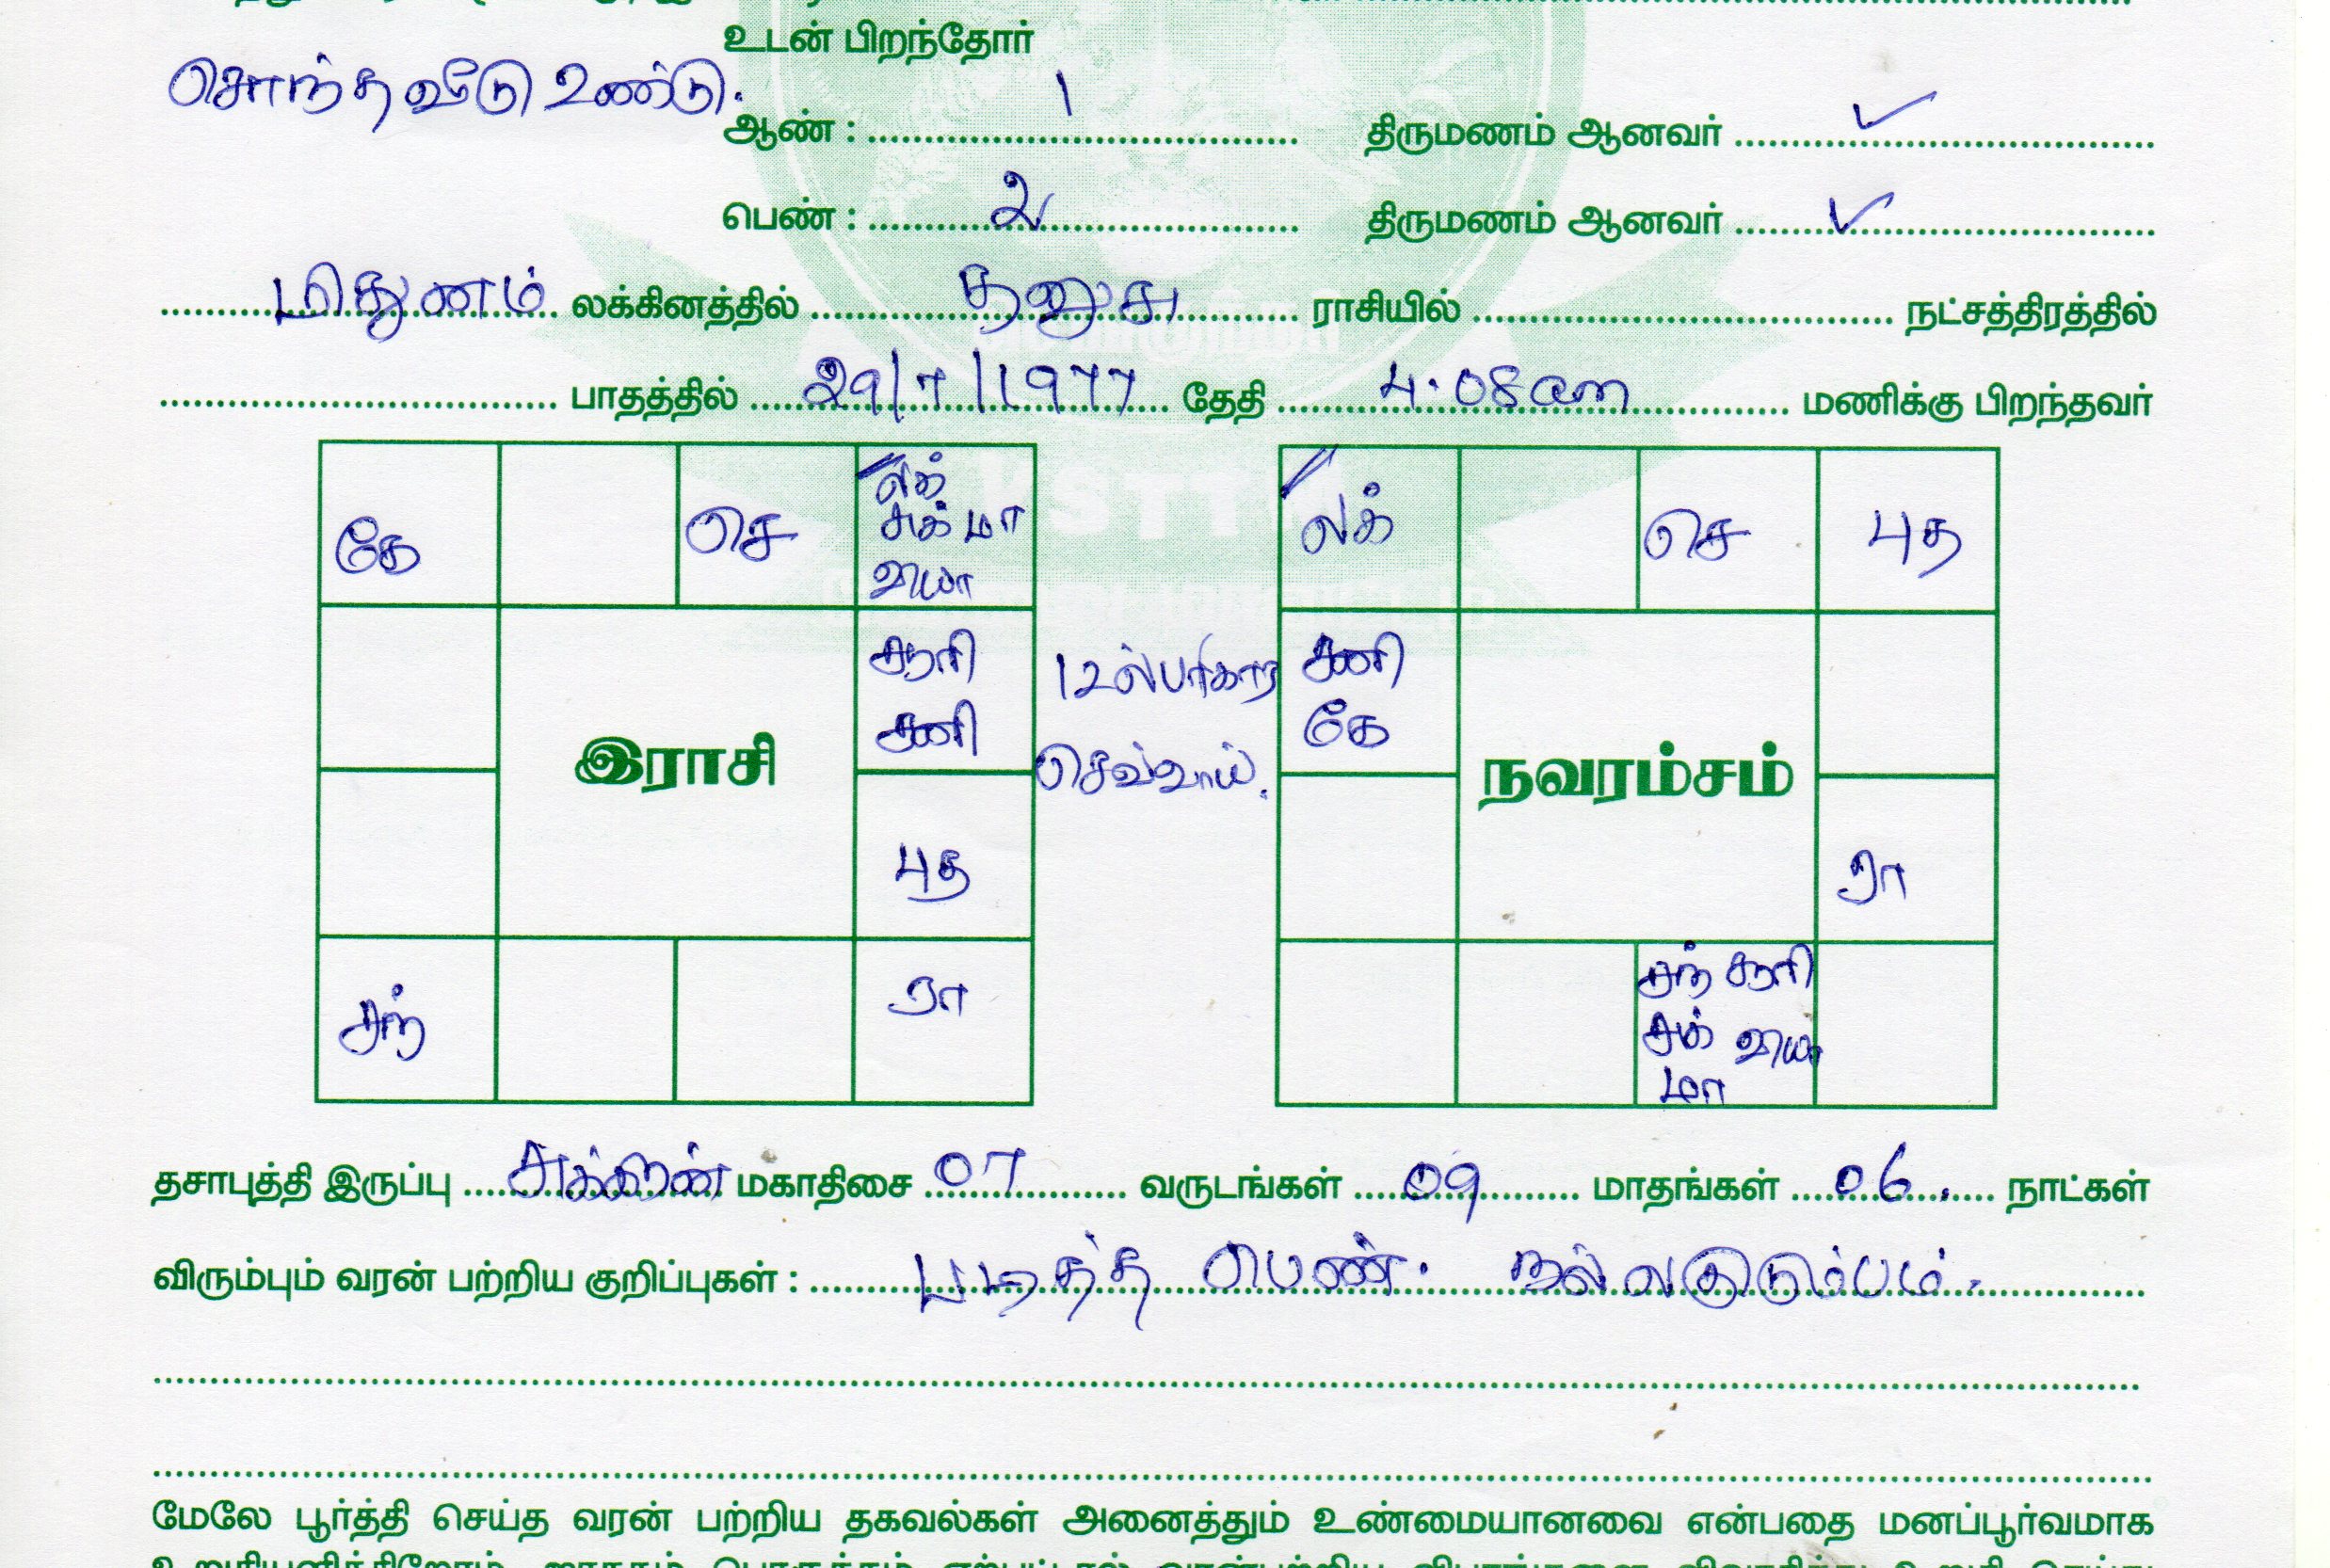 உடன் பிறந்தோர்
சொந்த வீடு உண்டு.
ஆண் : 1 திருமணம் ஆனவர் ✓
பெண் : 2 திருமணம் ஆனவர் ✓
மிதுணம் லக்கினத்தில் தனுசு ராசியில் நட்சத்திரத்தில்
பாதத்தில் 29/7/1977 தேதி 4.08am மணிக்கு பிறந்தவர்
கே
செ
லக்
சுக் மா
வியா
சூரி
சனி
இராசி
புத
சந்
ரா
12ல் பரிகார
செவ்வாய்.
லக்
செ
புத
சனி
கே
நவரம்சம்
ரா
சந் சூரி
சுக் வியா
மா
தசாபுத்தி இருப்பு சுக்கிரன் மகாதிசை 07 வருடங்கள் 09 மாதங்கள் 06. நாட்கள்
விரும்பும் வரன் பற்றிய குறிப்புகள் : படித்த பெண். நல்ல குடும்பம்.
மேலே பூர்த்தி செய்த வரன் பற்றிய தகவல்கள் அனைத்தும் உண்மையானவை என்பதை மனப்பூர்வமாக